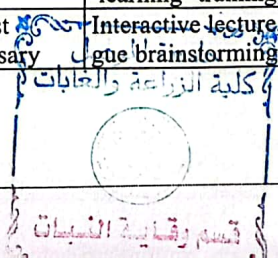 learning training
st Interactive lecture
sary gue brainstorming
كلية الزراعة والغابات
قسم وقاية النبات